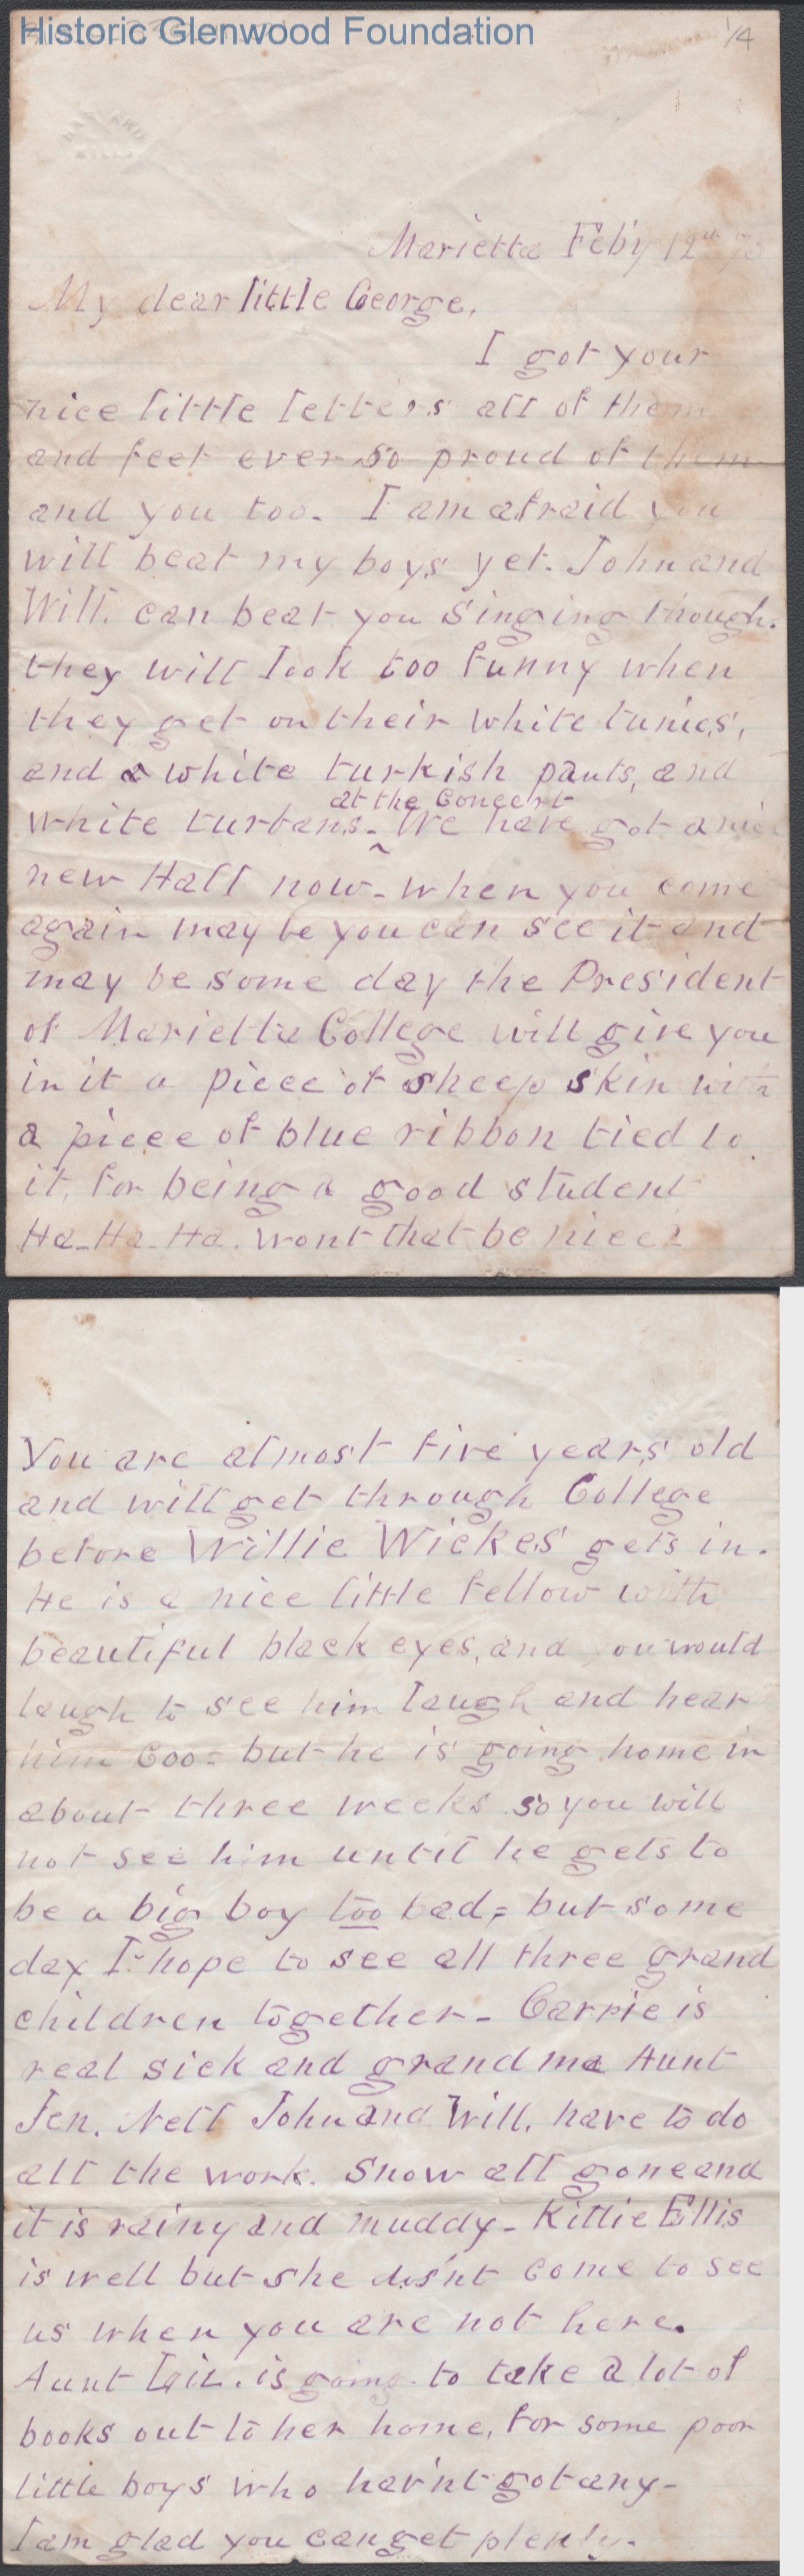 Historic Glenwood Foundation
1/4
Marietta Feb'y 12th 73
My dear little George,
I got your
nice little letters all of them
and feel ever so proud of them
and you too. I am afraid you
will beat my boys yet. John and
Will. can beat you singing though.
they will look too funny when
they get on their white tunics,
and a white turkish pants, and
at the Concert
white turbans. We have got a nice
new Hall now - when you come
again may be you can see it and
may be some day the President
of Marietta College will give you
in it a piece of sheep skin with
a piece of blue ribbon tied to
it, for being a good student
Ha-Ha-Ha. wont that be nice!
You are almost five years old
and will get through College
before Willie Wickes gets in.
He is a nice little fellow with
beautiful black eyes, and you would
laugh to see him laugh and hear
him Coo - but he is going home in
about three weeks so you will
not see him until he gets to
be a big boy too bad, - but some
day I hope to see all three grand
children together - Carrie is
real sick and grand ma Aunt
Jen. Nell John and Will. have to do
all the work. Snow all gone and
it is rainy and muddy - Kittie Ellis
is well but she dos'nt come to see
us when you are not here.
Aunt is going to take a lot of
books out to her home, for some poor
little boys who hav'nt got any -
I am glad you can get plenty.